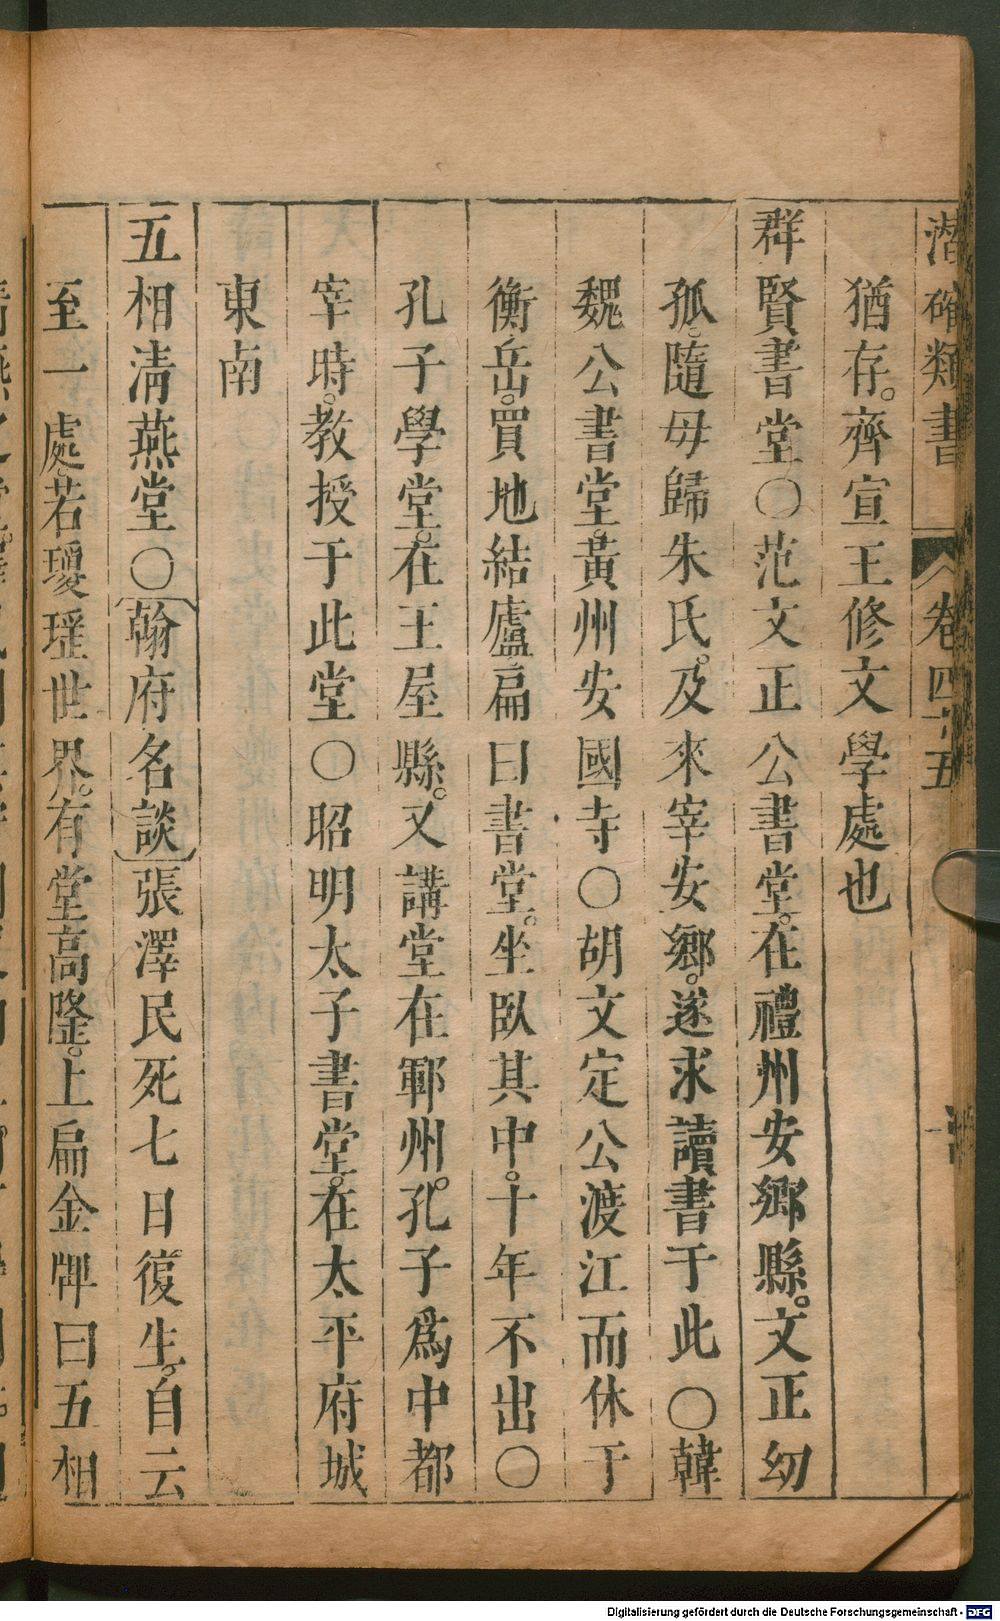 潛確類書 卷四十五
猶存。齊宣王修文學處也
群賢書堂〇范文正公書堂。在禮州安鄉縣。文正幼
孤。隨母歸朱氏。及來宰安鄉。遂求讀書于此〇韓
魏公書堂。黃州安國寺〇胡文定公渡江而休于
衡岳。買地結廬。扁曰書堂。坐臥其中。十年不出〇
孔子學堂。在王屋縣。又講堂在鄆州。孔子爲中都
宰時。教授于此堂〇昭明太子書堂。在太平府城
東南
五相清燕堂〇〔翰府名談〕張澤民死七日復生。自云
至一處。若瓊瑤世界。有堂高隆。上扁金牌曰五相
Digitalisierung gefördert durch die Deutsche Forschungsgemeinschaft - DFG